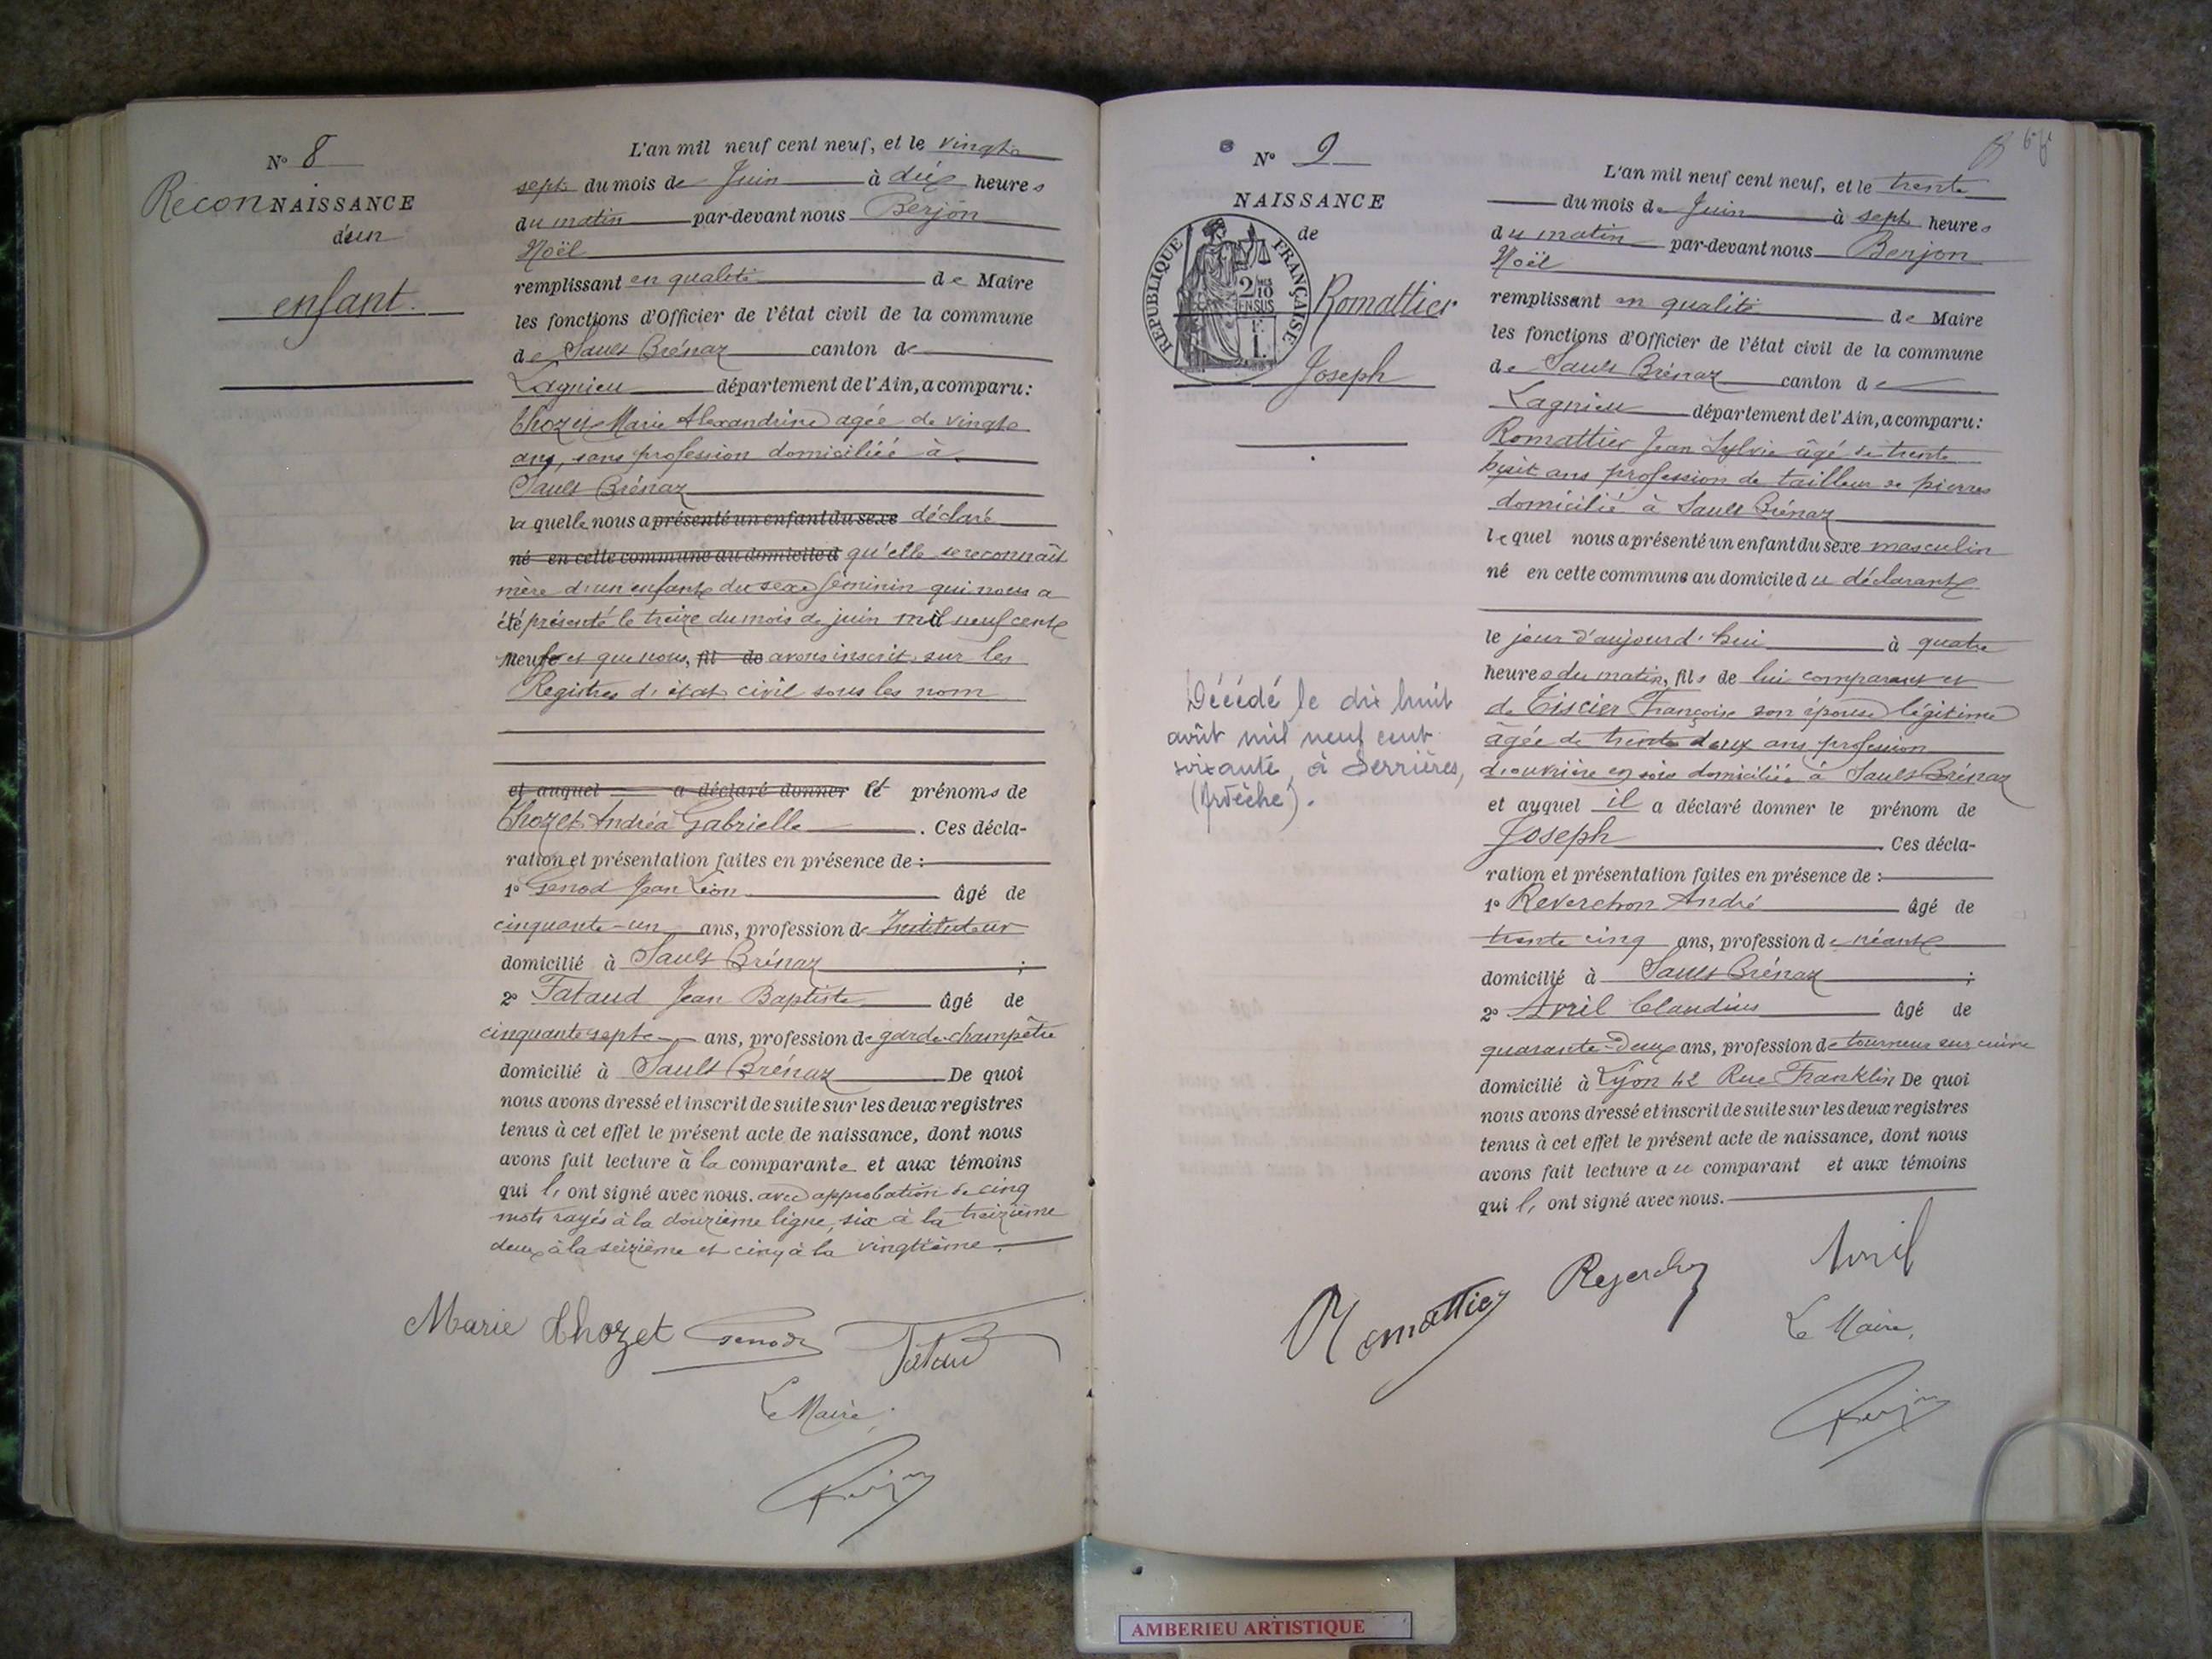 N° 8
ReconNAISSANCE
d'un
enfant.
L'an mil neuf cent neuf, et le vingt
sept du mois de Juin à dix heures
du matin par-devant nous Berjon
Noël
remplissant en qualité de Maire
les fonctions d'Officier de l'état civil de la commune
de Sault Brénaz canton de
Lagnieu département de l'Ain, a comparu:
Chozet Marie Alexandrine agée de vingt
ans, sans profession domiciliée à
Sault Brénaz
la quelle nous a présenté un enfant du sexe déclaré
né en cette commune au domicile d qu'elle se reconnaît
mère d'un enfant du sexe féminin qui nous a
été présenté le treize du mois de juin mil neuf cent
neuf et que nous, fil de avons inscrit sur les
Registres d'état civil sous les nom
et auquel a déclaré donner et prénoms de
Chozet Andréa Gabrielle. Ces décla-
ration et présentation faites en présence de :
1° Genod Jean Léon âgé de
cinquante-un ans, profession de Instituteur
domicilié à Sault Brénaz ;
2° Tataud Jean Baptiste âgé de
cinquante sept ans, profession de garde-champêtre
domicilié à Sault Brénaz De quoi
nous avons dressé et inscrit de suite sur les deux registres
tenus à cet effet le présent acte de naissance, dont nous
avons fait lecture à la comparante et aux témoins
qui l' ont signé avec nous. avec approbation de cinq
mots rayés à la douzième ligne, six à la treizième
deux à la seizième et cinq à la vingtième.
Marie Chozet Genod Tataud
Le Maire,
N° 9
NAISSANCE
de
REPUBLIQUE FRANÇAISE
2/10 EN SUS
Romattier
Joseph
Décédé le dix huit
août mil neuf cent
soixante, à Serrières,
(Ardèche).
L'an mil neuf cent neuf, et le trente
du mois de Juin à sept heures
du matin par-devant nous Berjon
Noël
remplissant en qualité de Maire
les fonctions d'Officier de l'état civil de la commune
de Sault Brénaz canton de
Lagnieu département de l'Ain, a comparu:
Romattier Jean Sylvie âgé de trente
huit ans profession de tailleur de pierres
domicilié à Sault Brénaz
lequel nous a présenté un enfant du sexe masculin
né en cette commune au domicile du déclarant
le jour d'aujourd'hui à quatre
heures du matin, fils de lui comparant et
de Tiscier Françoise son épouse légitime
âgée de trente deux ans profession
d'ouvrière en soie domiciliée à Sault Brénaz
et auquel il a déclaré donner le prénom de
Joseph. Ces décla-
ration et présentation faites en présence de :
1° Reverchon André âgé de
trente cinq ans, profession de néant
domicilié à Sault Brénaz ;
2° Avril Claudius âgé de
quarante-deux ans, profession de tourneur sur cuivre
domicilié à Lyon 42 Rue Franklin De quoi
nous avons dressé et inscrit de suite sur les deux registres
tenus à cet effet le présent acte de naissance, dont nous
avons fait lecture au comparant et aux témoins
qui l' ont signé avec nous.
Romattier Reverchon Avril
Le Maire,
AMBERIEU ARTISTIQUE